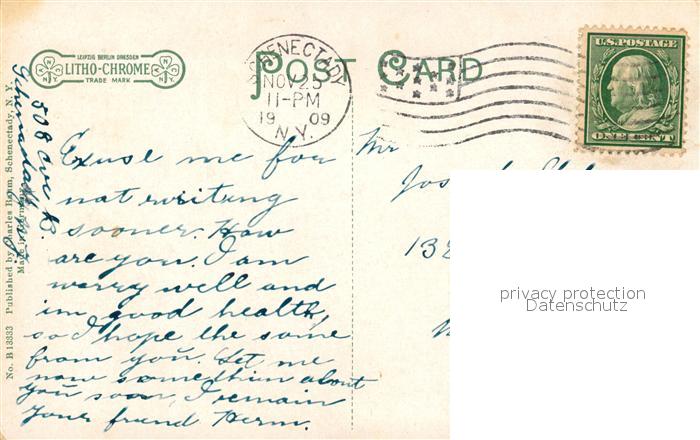 LEIPZIG BERLIN DRESDEN
LITHO-CHROME
TRADE MARK
POST CARD
SCHENECTADY
NOV 23
11-PM
1909
N.Y.
U.S. POSTAGE
ONE CENT
Mr
Jos
138
privacy protection
Datenschutz
Excuse me for
not writing
sooner. How
are you. I am
werry well and
im good health,
so I hope the same
from you. Let me
now somethin about
you soon, I remain
your friend Herm.
508
Schenectady, N.Y.
No. B 13333 Published by Charles Behm, Schenectady, N. Y.
Made in Germany